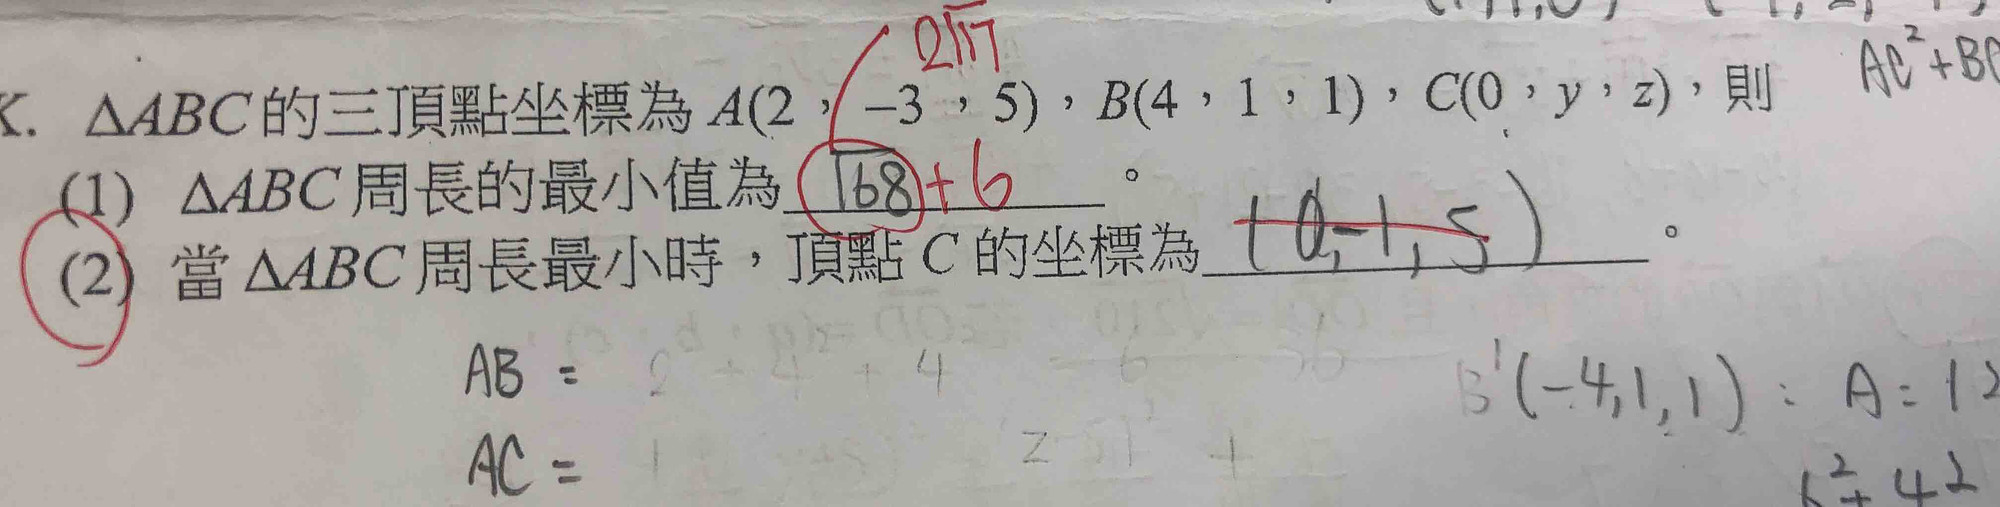 2√17
AC²+BC
K. ΔABC 的三頂點坐標為 A(2，−3，5)，B(4，1，1)，C(0，y，z)，則
(1) ΔABC 周長的最小值為 √68+6 。
(2) 當 ΔABC 周長最小時，頂點 C 的坐標為 (0,-1,5) 。
AB = 2² + 4² + 4
B'(-4,1,1) : A = (2
AC =
6²+4²